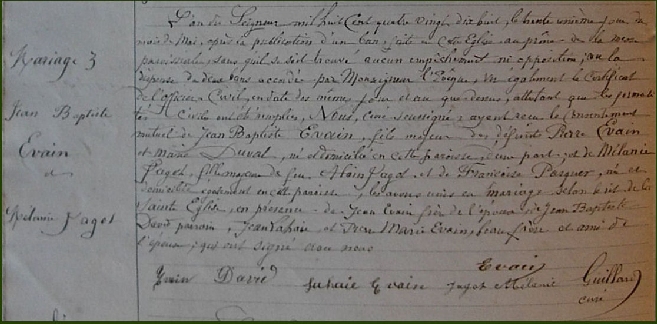 Mariage 3
Jean Baptiste
Evain
et
Mélanie Jagot
L'an du Seigneur mil huit cent quatre vingt dix huit, le trente unième jour du
mois de Mai, après la publication d'un ban, faite en cette Eglise au prône de la messe
paroissiale, sans qu'il se soit trouvé aucun empêchement ni opposition; vu la
dispense de deux bans accordée par Monseigneur l'Evêque, vu également le certificat
de l'officier Civil, en date des mêmes jour et an que dessus, attestant que les formali
tés Civiles ont été remplies, Nous, Curé soussigné, ayant reçu le consentement
mutuel de Jean Baptiste Evain, fils majeur des défunts Pierre Evain
et Marie Duval, né et domicilié en cette paroisse, d'une part, et de Mélanie
Jagot, fille majeure de feu Alain Jagot et de Françoise Pasquer, née et
domiciliée en cette paroisse, les avons unis en mariage selon le rit de la
Sainte Eglise, en présence de Jean Evain frère de l'époux, de Jean Baptiste
David parrain, Jean et Marie Evain, beau frère et ami de
l'époux; qui ont signé avec nous
Evain
Evain David Evain Jagot Mélanie Guillard
curé